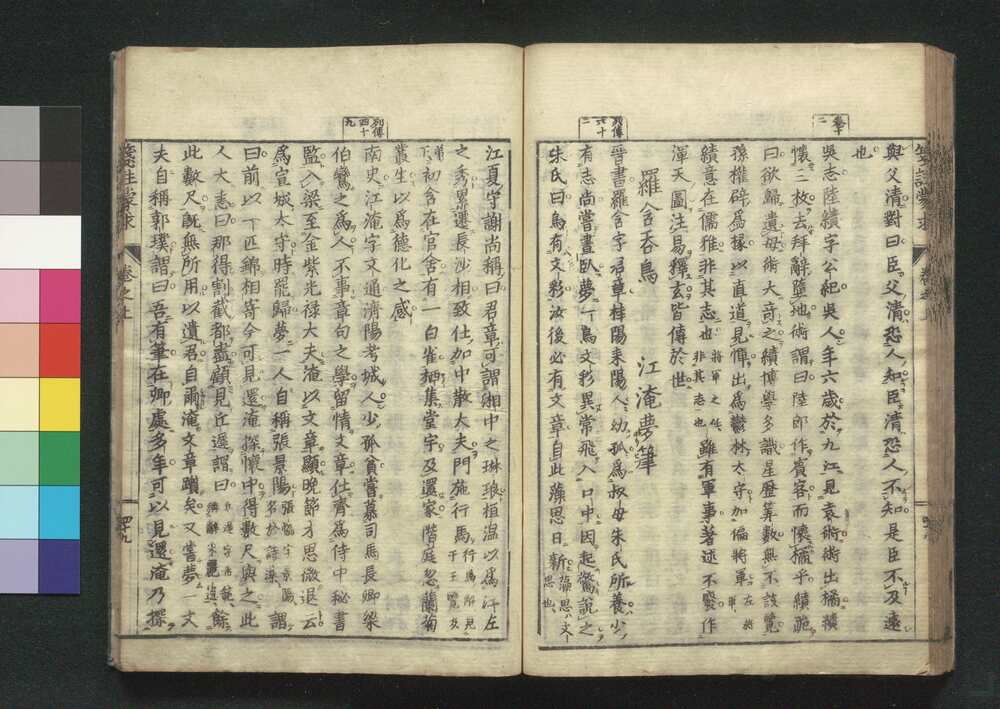 與父清對曰臣父清恐人知臣清恐人不知是臣不及遠
也
吳志陸績字公紀吳人年六歲於九江見袁術術出橘績
懷三枚去拜辭墮地術謂曰陸郎作賓客而懷橘乎績跪
曰欲歸遺母術大奇之績博學多識星歷算數無不該覽
孫權辟為掾以直道見憚出為鬱林太守加偏將軍
績意在儒雅非其志也 雖有軍事著述不廢作
渾天圖注易釋玄皆傳於世
羅含吞鳥 江淹夢筆
晉書羅含字君章桂陽耒陽人幼孤為叔母朱氏所養少
有志尚嘗晝臥夢一鳥文彩異常飛入口中因起驚說之
朱氏曰鳥有文彩汝後必有文章自此藻思日新
列傳六十二
江夏守謝尚稱曰君章可謂湘中之琳琅桓溫以為江左
之秀累遷長沙相致仕加中散大夫門施行馬
初含在官舍有一白雀栖集堂宇及還家階庭忽蘭菊
叢生以為德化之感
南史江淹字文通濟陽考城人少孤貧嘗慕司馬長卿梁
伯鸞之為人不事章句之學留情文章仕齊為侍中祕書
監入梁至金紫光祿大夫淹以文章顯晚節才思微退云
為宣城太守時罷歸夢一人自稱張景陽 謂
曰前以一匹錦相寄今可見還淹探懷中得數尺與之此
人大恚曰那得割截都盡顧見丘遲謂曰 餘
此數尺既無所用以遺君自爾淹文章躓矣又嘗夢一丈
夫自稱郭璞謂曰吾有筆在卿處多年可以見還淹乃探
列傳四十九
箋註蒙求 卷之上 四十九